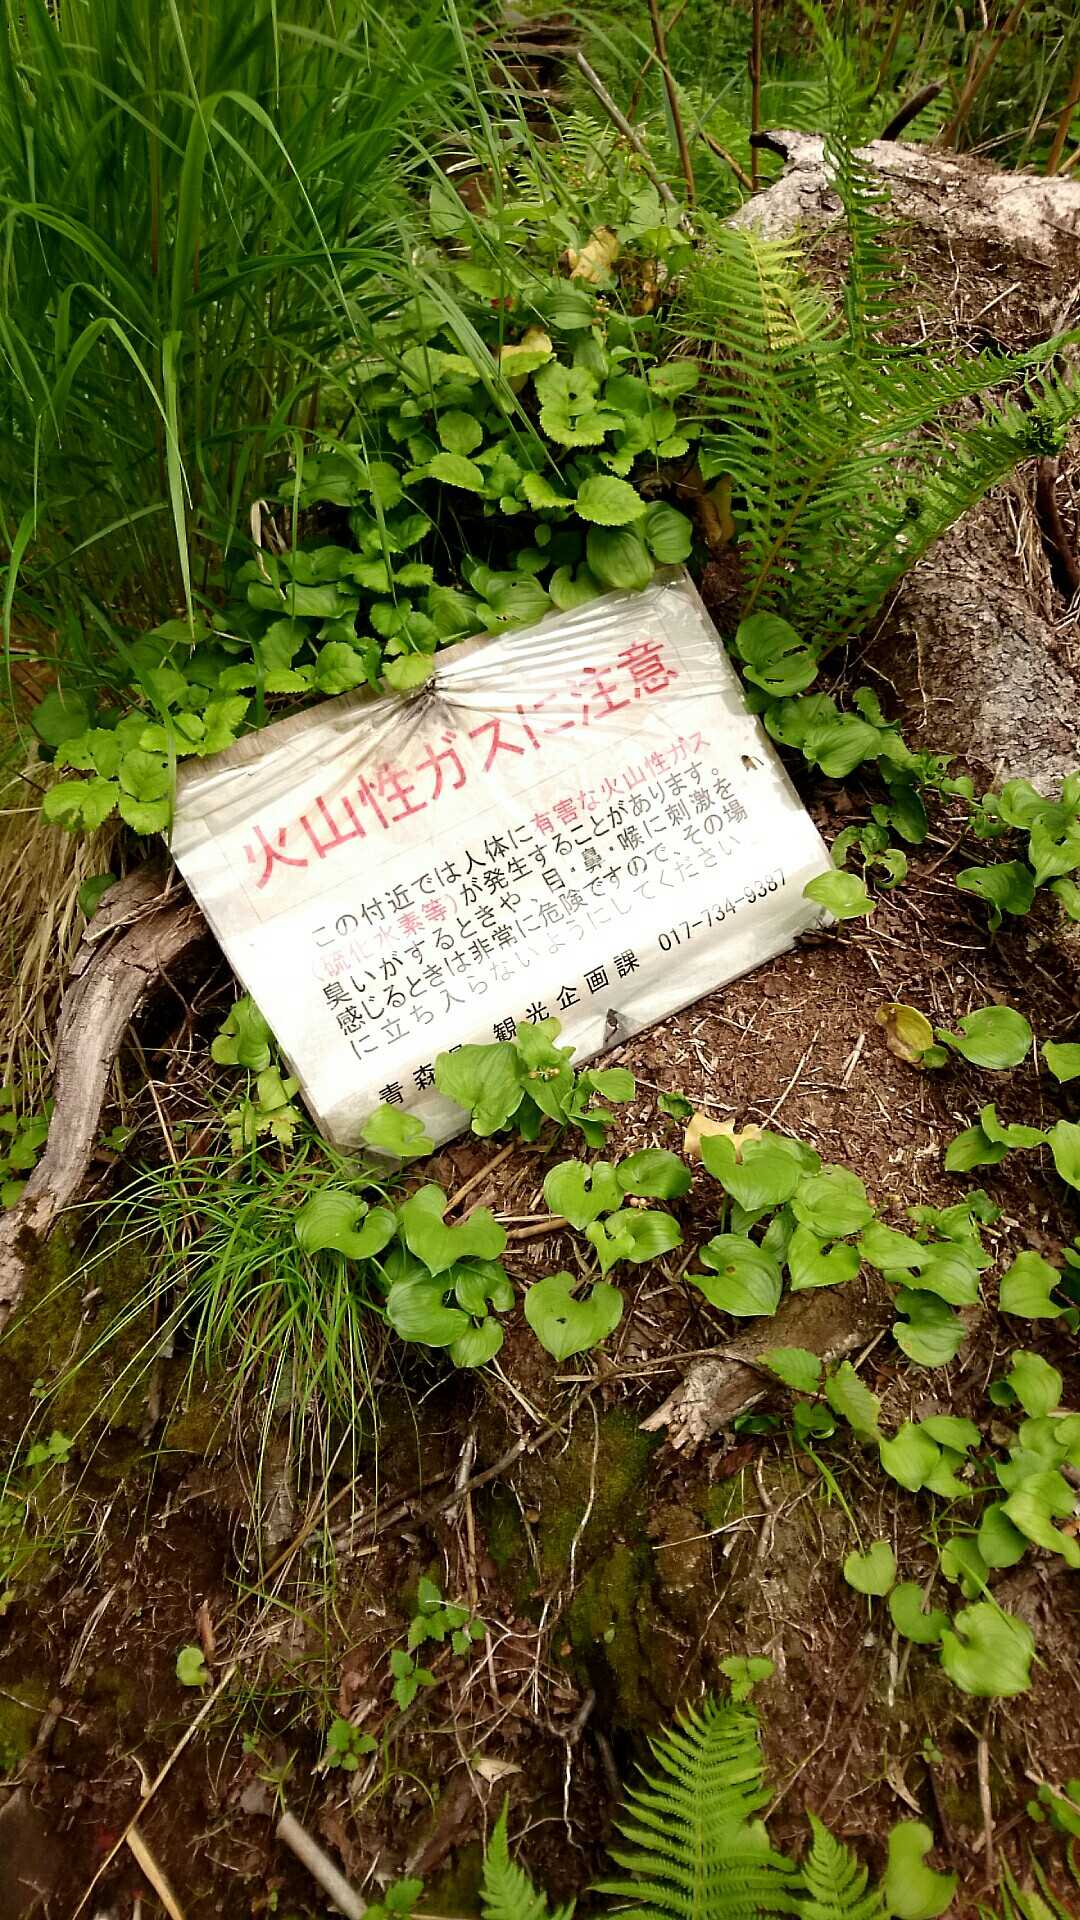 火山性ガスに注意
この付近では人体に有害な火山性ガス
(硫化水素等)が発生することがあります。
臭いがするときや、目・鼻・喉に刺激を
感じるときは非常に危険ですので、その場
に立ち入らないようにしてください
青森県 観光企画課 017-734-9387